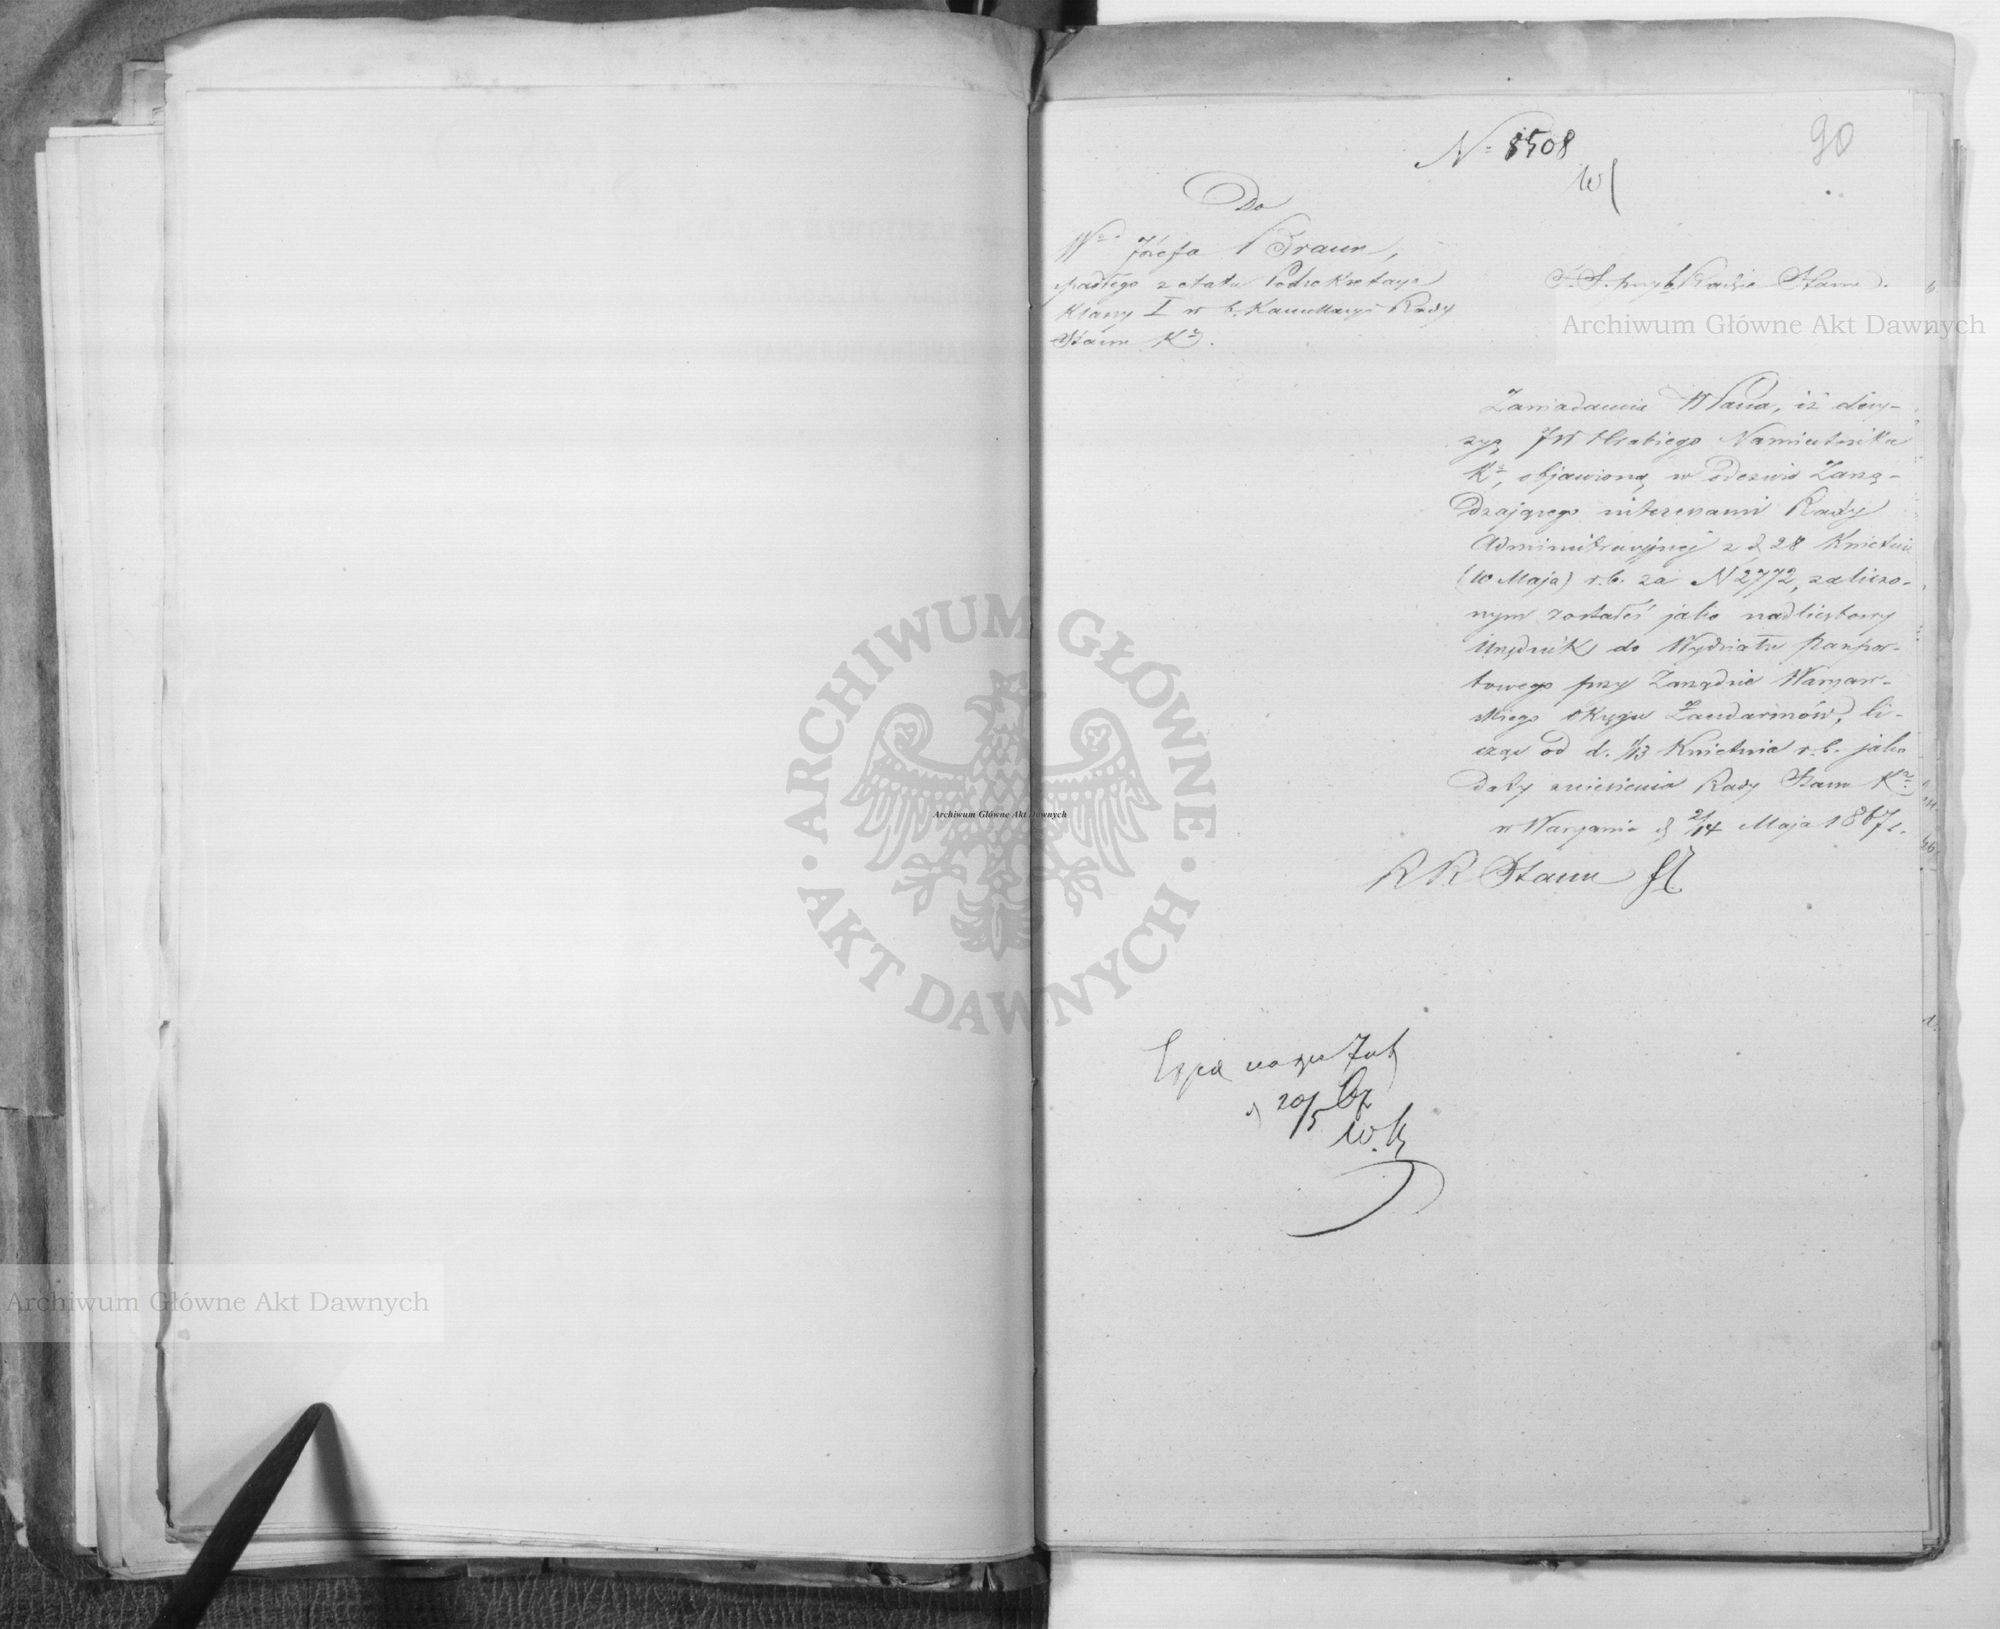 90
N 8508
Do
Wo Józefa Braun,
spadłego z etatu Podsekretarza
Klassy I w b. Kancellaryi Rady
Stanu Ka.
S. S. przy b. Radzie Stanu
Zawiadamia WPana, iż decy-
zyą JW Hrabiego Namiestnika
Ka, objawioną w odezwie Zarzą-
dzającego interesami Rady
Administracyjnej z d 28 Kwietnia
(10 Maja) r.b. za N 2772, zaliczo-
nym zostałeś jako nadliczbowy
Urzędnik do Wydziału Paszpor-
towego przy Zarządzie Warszaw-
skiego Okręgu Żandarmów, li-
cząc od d. 1/13 Kwietnia r.b. jako
daty zniesienia Rady Stanu Ka.
w Warszawie d 2/14 Maja 1867 r.
R R Stanu
d 20/5 67
Archiwum Główne Akt Dawnych
Archiwum Główne Akt Dawnych
Archiwum Główne Akt Dawnych
ARCHIWUM GŁÓWNE · AKT DAWNYCH ·